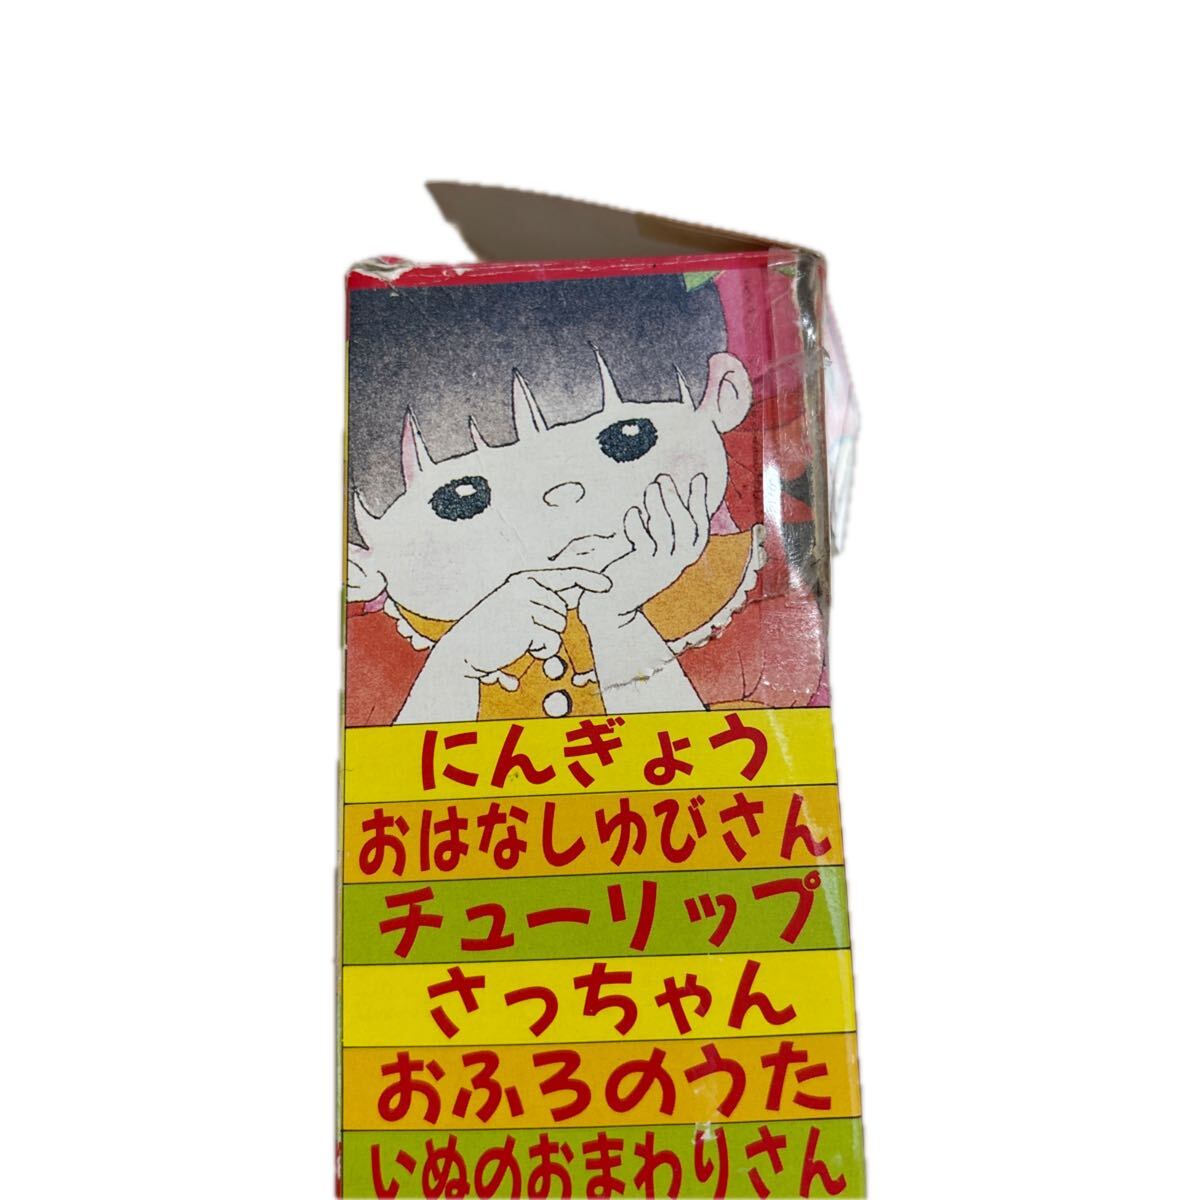 にんぎょう
おはなしゆびさん
チューリップ
さっちゃん
おふろのうた
いぬのおまわりさん